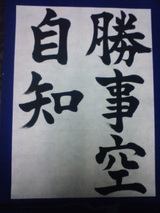 勝事空
自知